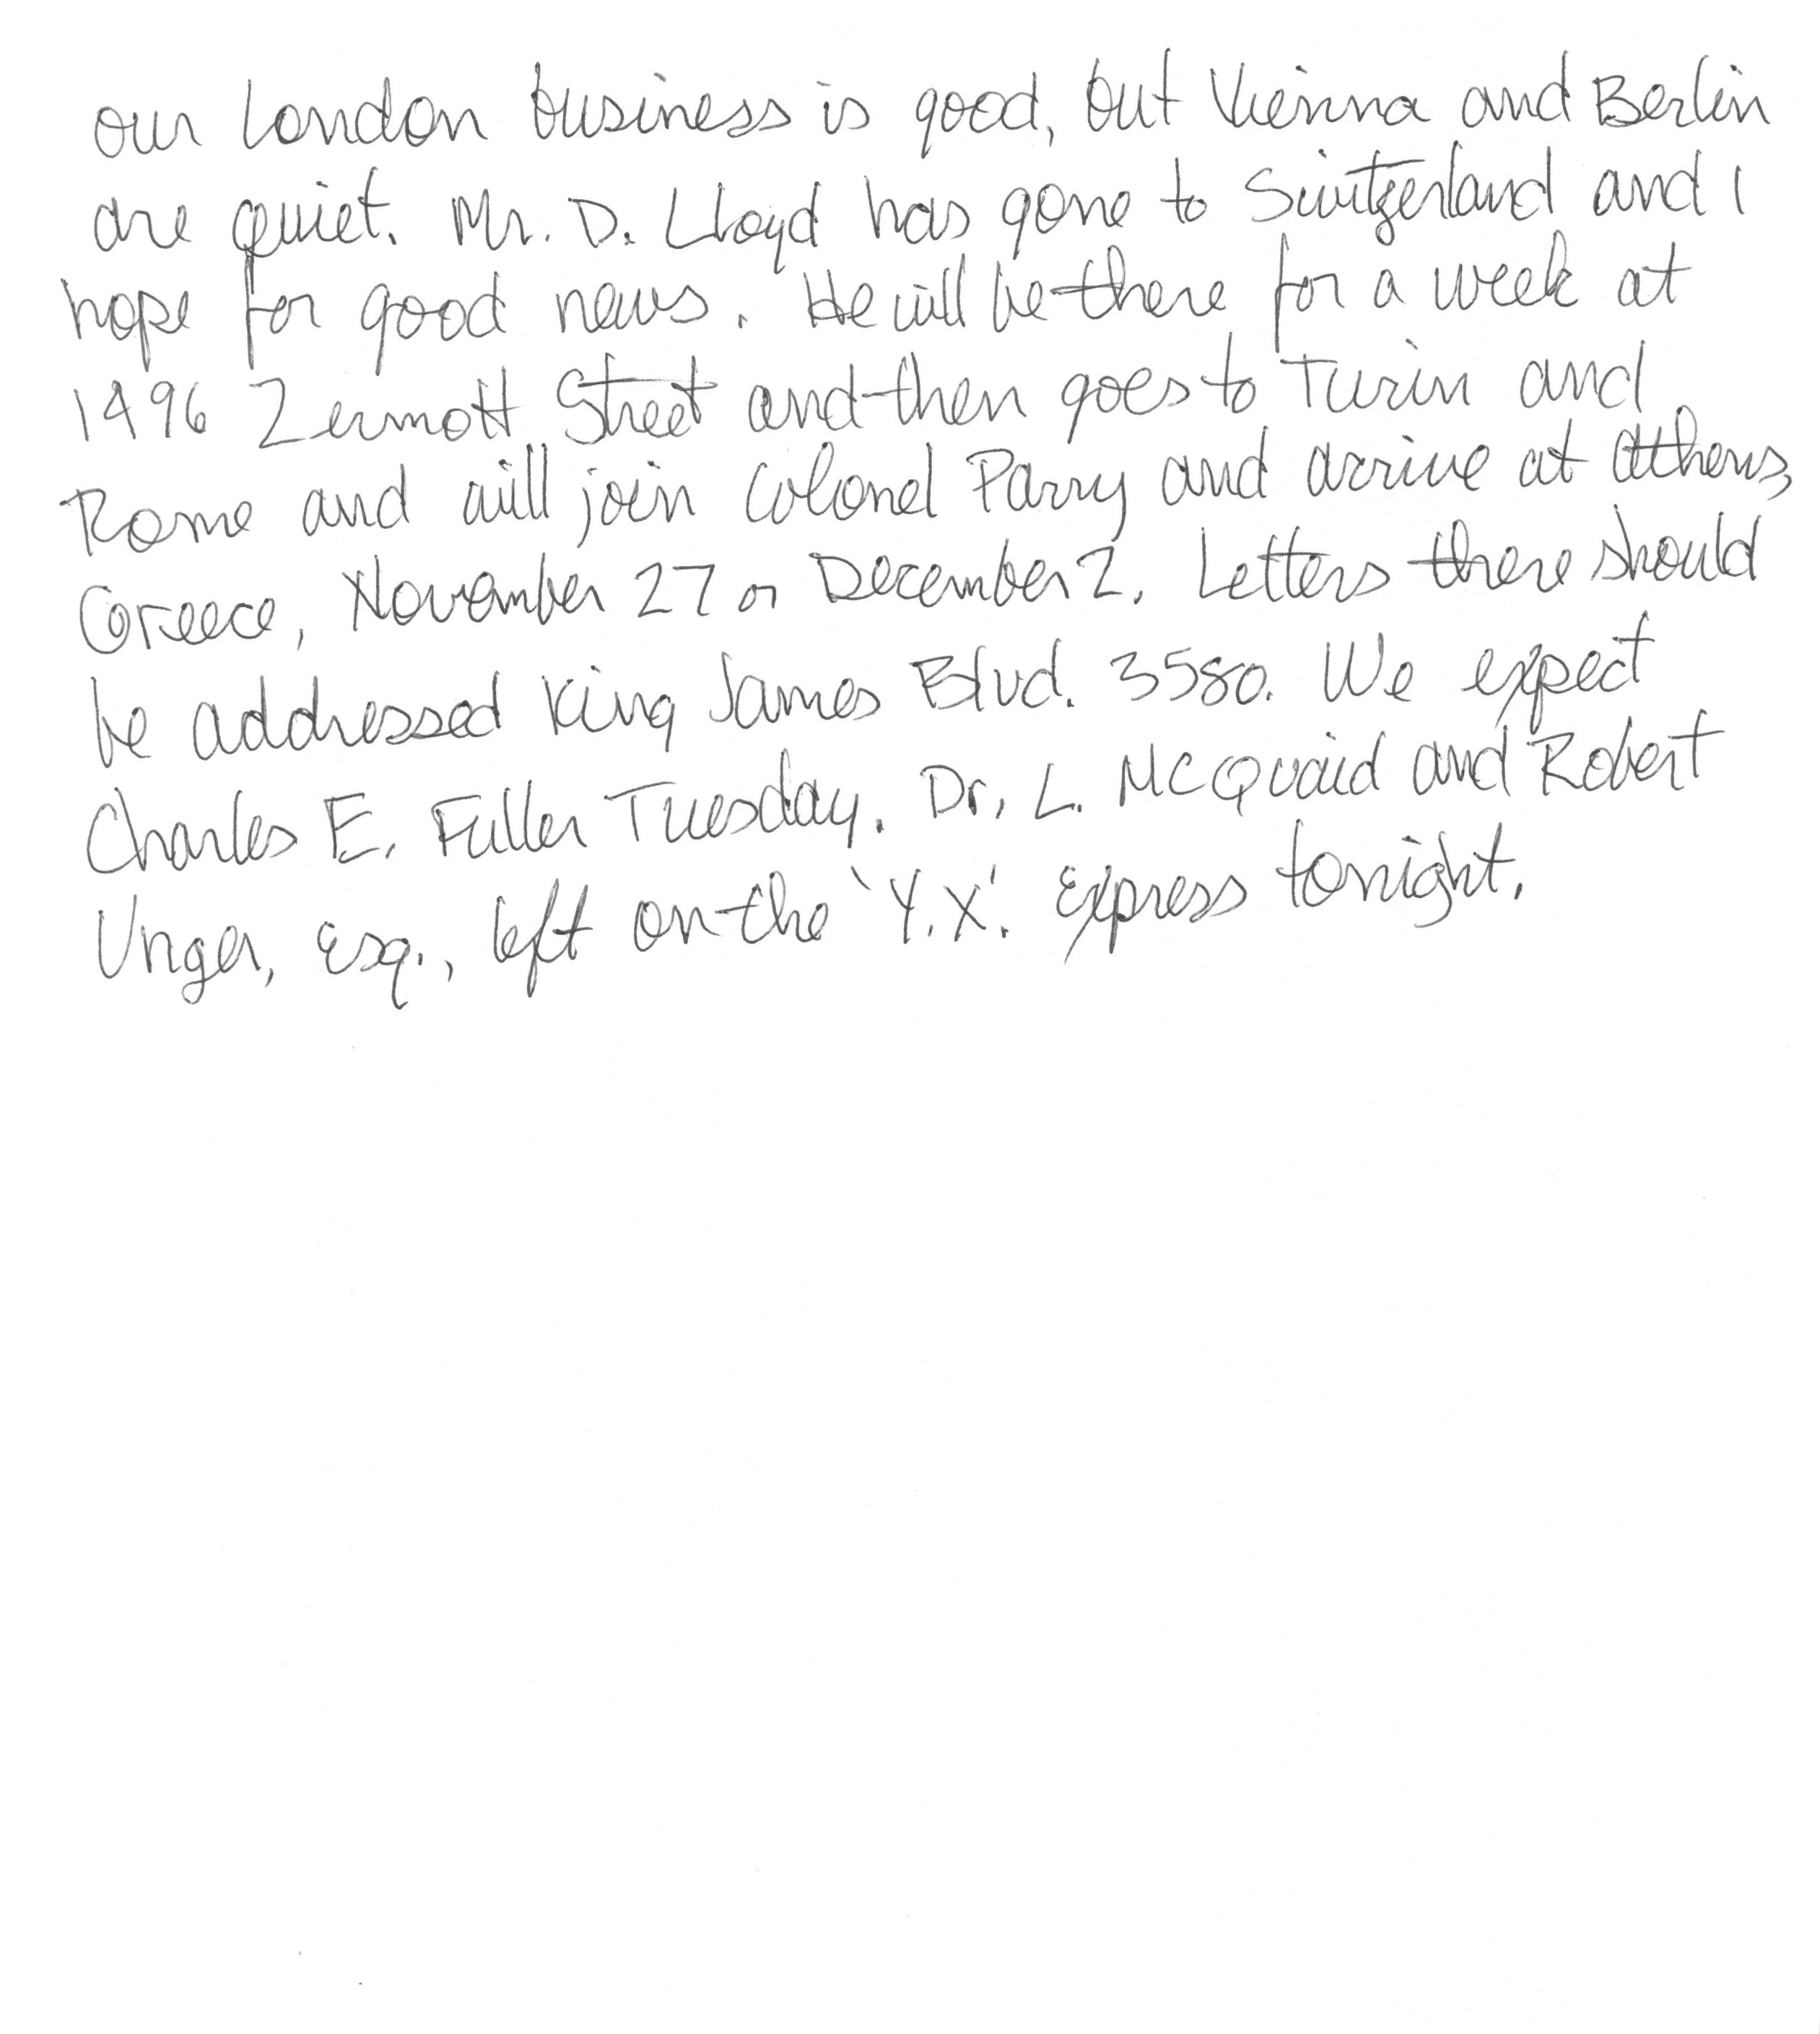 our London business is good, but Vienna and Berlin
are quiet. Mr. D. Lloyd has gone to Switzerland and I
hope for good news. He will be there for a week at
1496 Zermott Street and then goes to Turin and
Rome and will join Colonel Parry and arrive at Athens,
Greece, November 27 or December 2. Letters there should
be addressed King James Blvd. 3580. We expect
Charles E. Fuller Tuesday. Dr. L. McQuaid and Robert
Unger, Esq., left on the 'Y.X.' Express tonight.